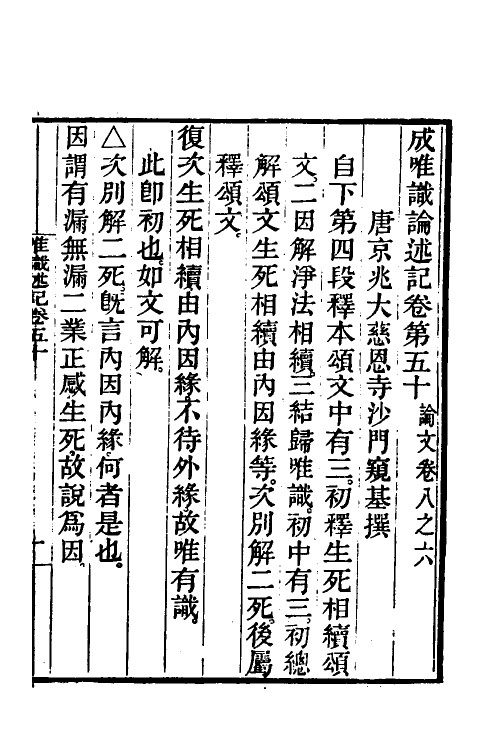 成唯識論述記卷第五十 論文卷八之六
唐京兆大慈恩寺沙門窺基撰
自下第四段釋本頌文中有三。初釋生死相續頌
文。二因解淨法相續。三結歸唯識。初中有三。初總
解頌文生死相續由內因緣等。次別解二死。後屬
釋頌文。
復次生死相續由內因緣。不待外緣。故唯有識。
此卽初也。如文可解。
△次別解二死。旣言內因內緣。何者是也。
因謂有漏無漏二業正感生死。故說爲因。
唯識述記卷五十 一